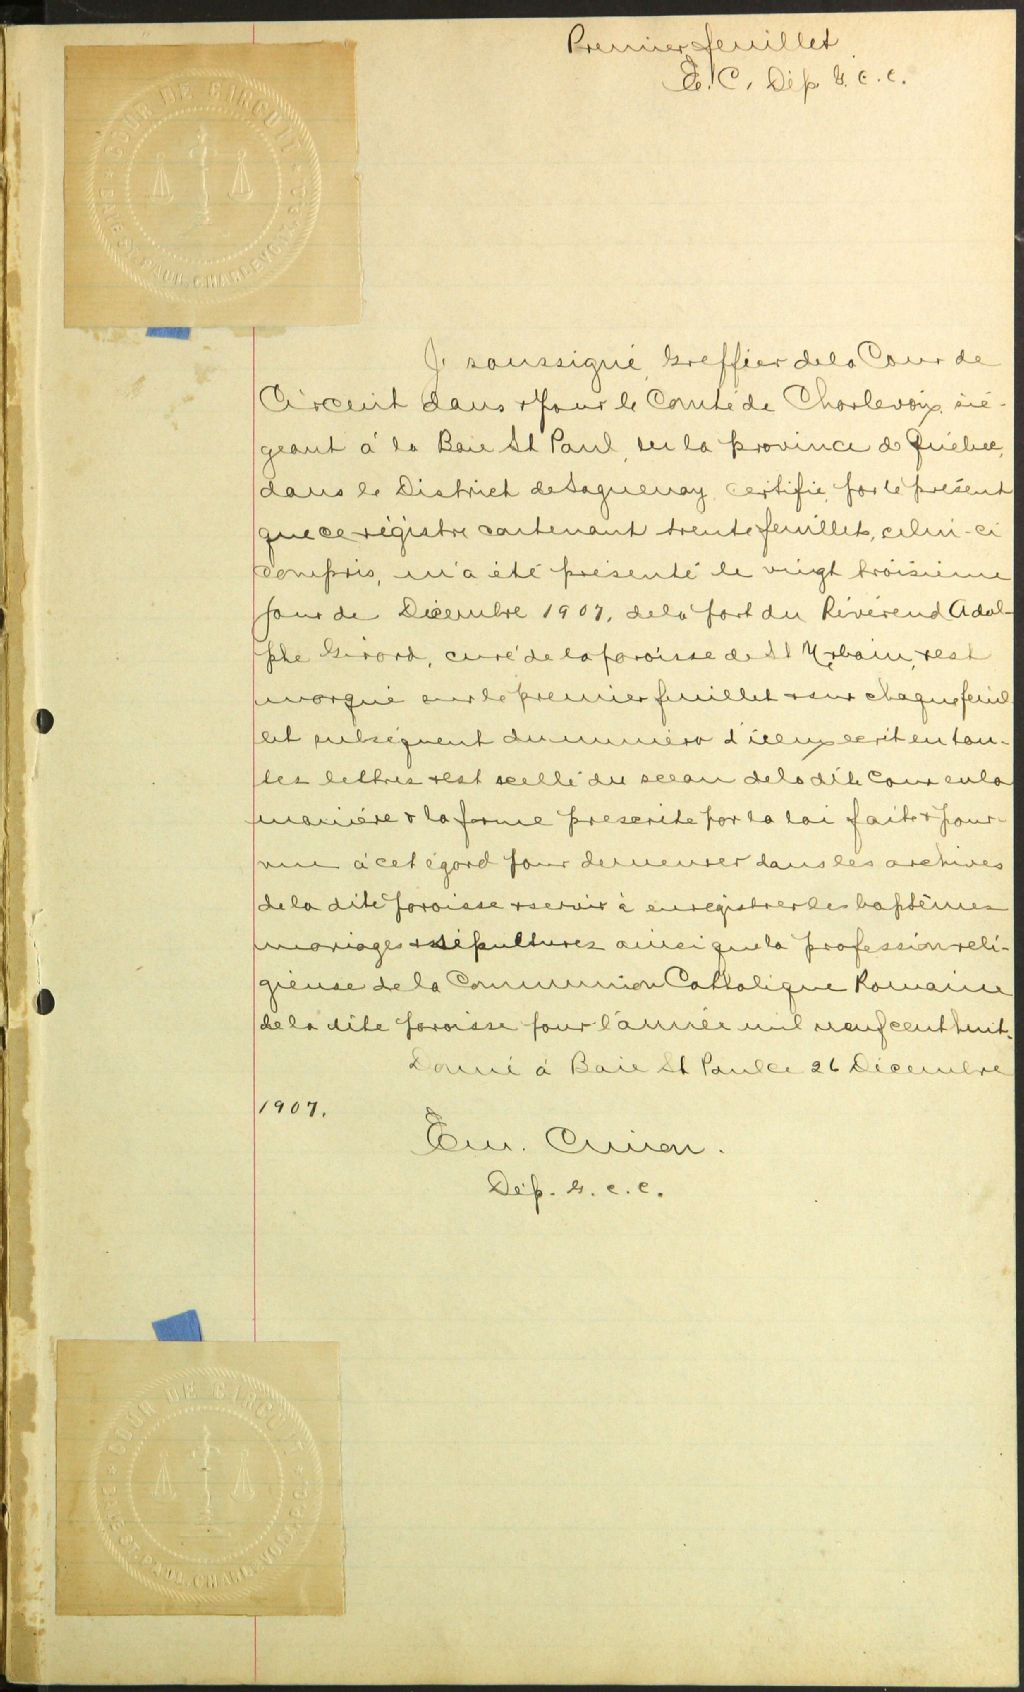 Premier feuillet
E. C. Dép. G. C. C.
COUR DE CIRCUIT
BAIE ST. PAUL, CHARLEVOIX, P.Q.
Je soussigné, Greffier de la Cour de
Circuit dans & pour le Comté de Charlevoix, sié-
geant à la Baie St Paul, en la province de Québec,
dans le District de Saguenay, certifie, par le présent
que ce régistre contenant trente feuillets, celui-ci
compris, m'a été présenté le vingt troisième
jour de Décembre 1907, de la part du Révérend Adol-
phe Girard, curé de la paroisse de St Urbain, & est
marqué sur le premier feuillet & sur chaque feuil-
let subséquent du numéro d'iceux écrit en tou-
tes lettres & est scellé du sceau de la dite Cour en la
manière & la forme prescrite par la loi faite & pour-
vue à cet égard pour demeurer dans les archives
de la dite paroisse & servir à enregistrer les baptêmes
mariages & sépultures ainsi que la profession reli-
gieuse de la Communion Catholique Romaine
de la dite paroisse pour l'année mil neuf cent huit.
Donné à Baie St Paul ce 26 Décembre
1907.
Em. Cimon.
Dép. G. C. C.
COUR DE CIRCUIT
BAIE ST. PAUL, CHARLEVOIX, P.Q.